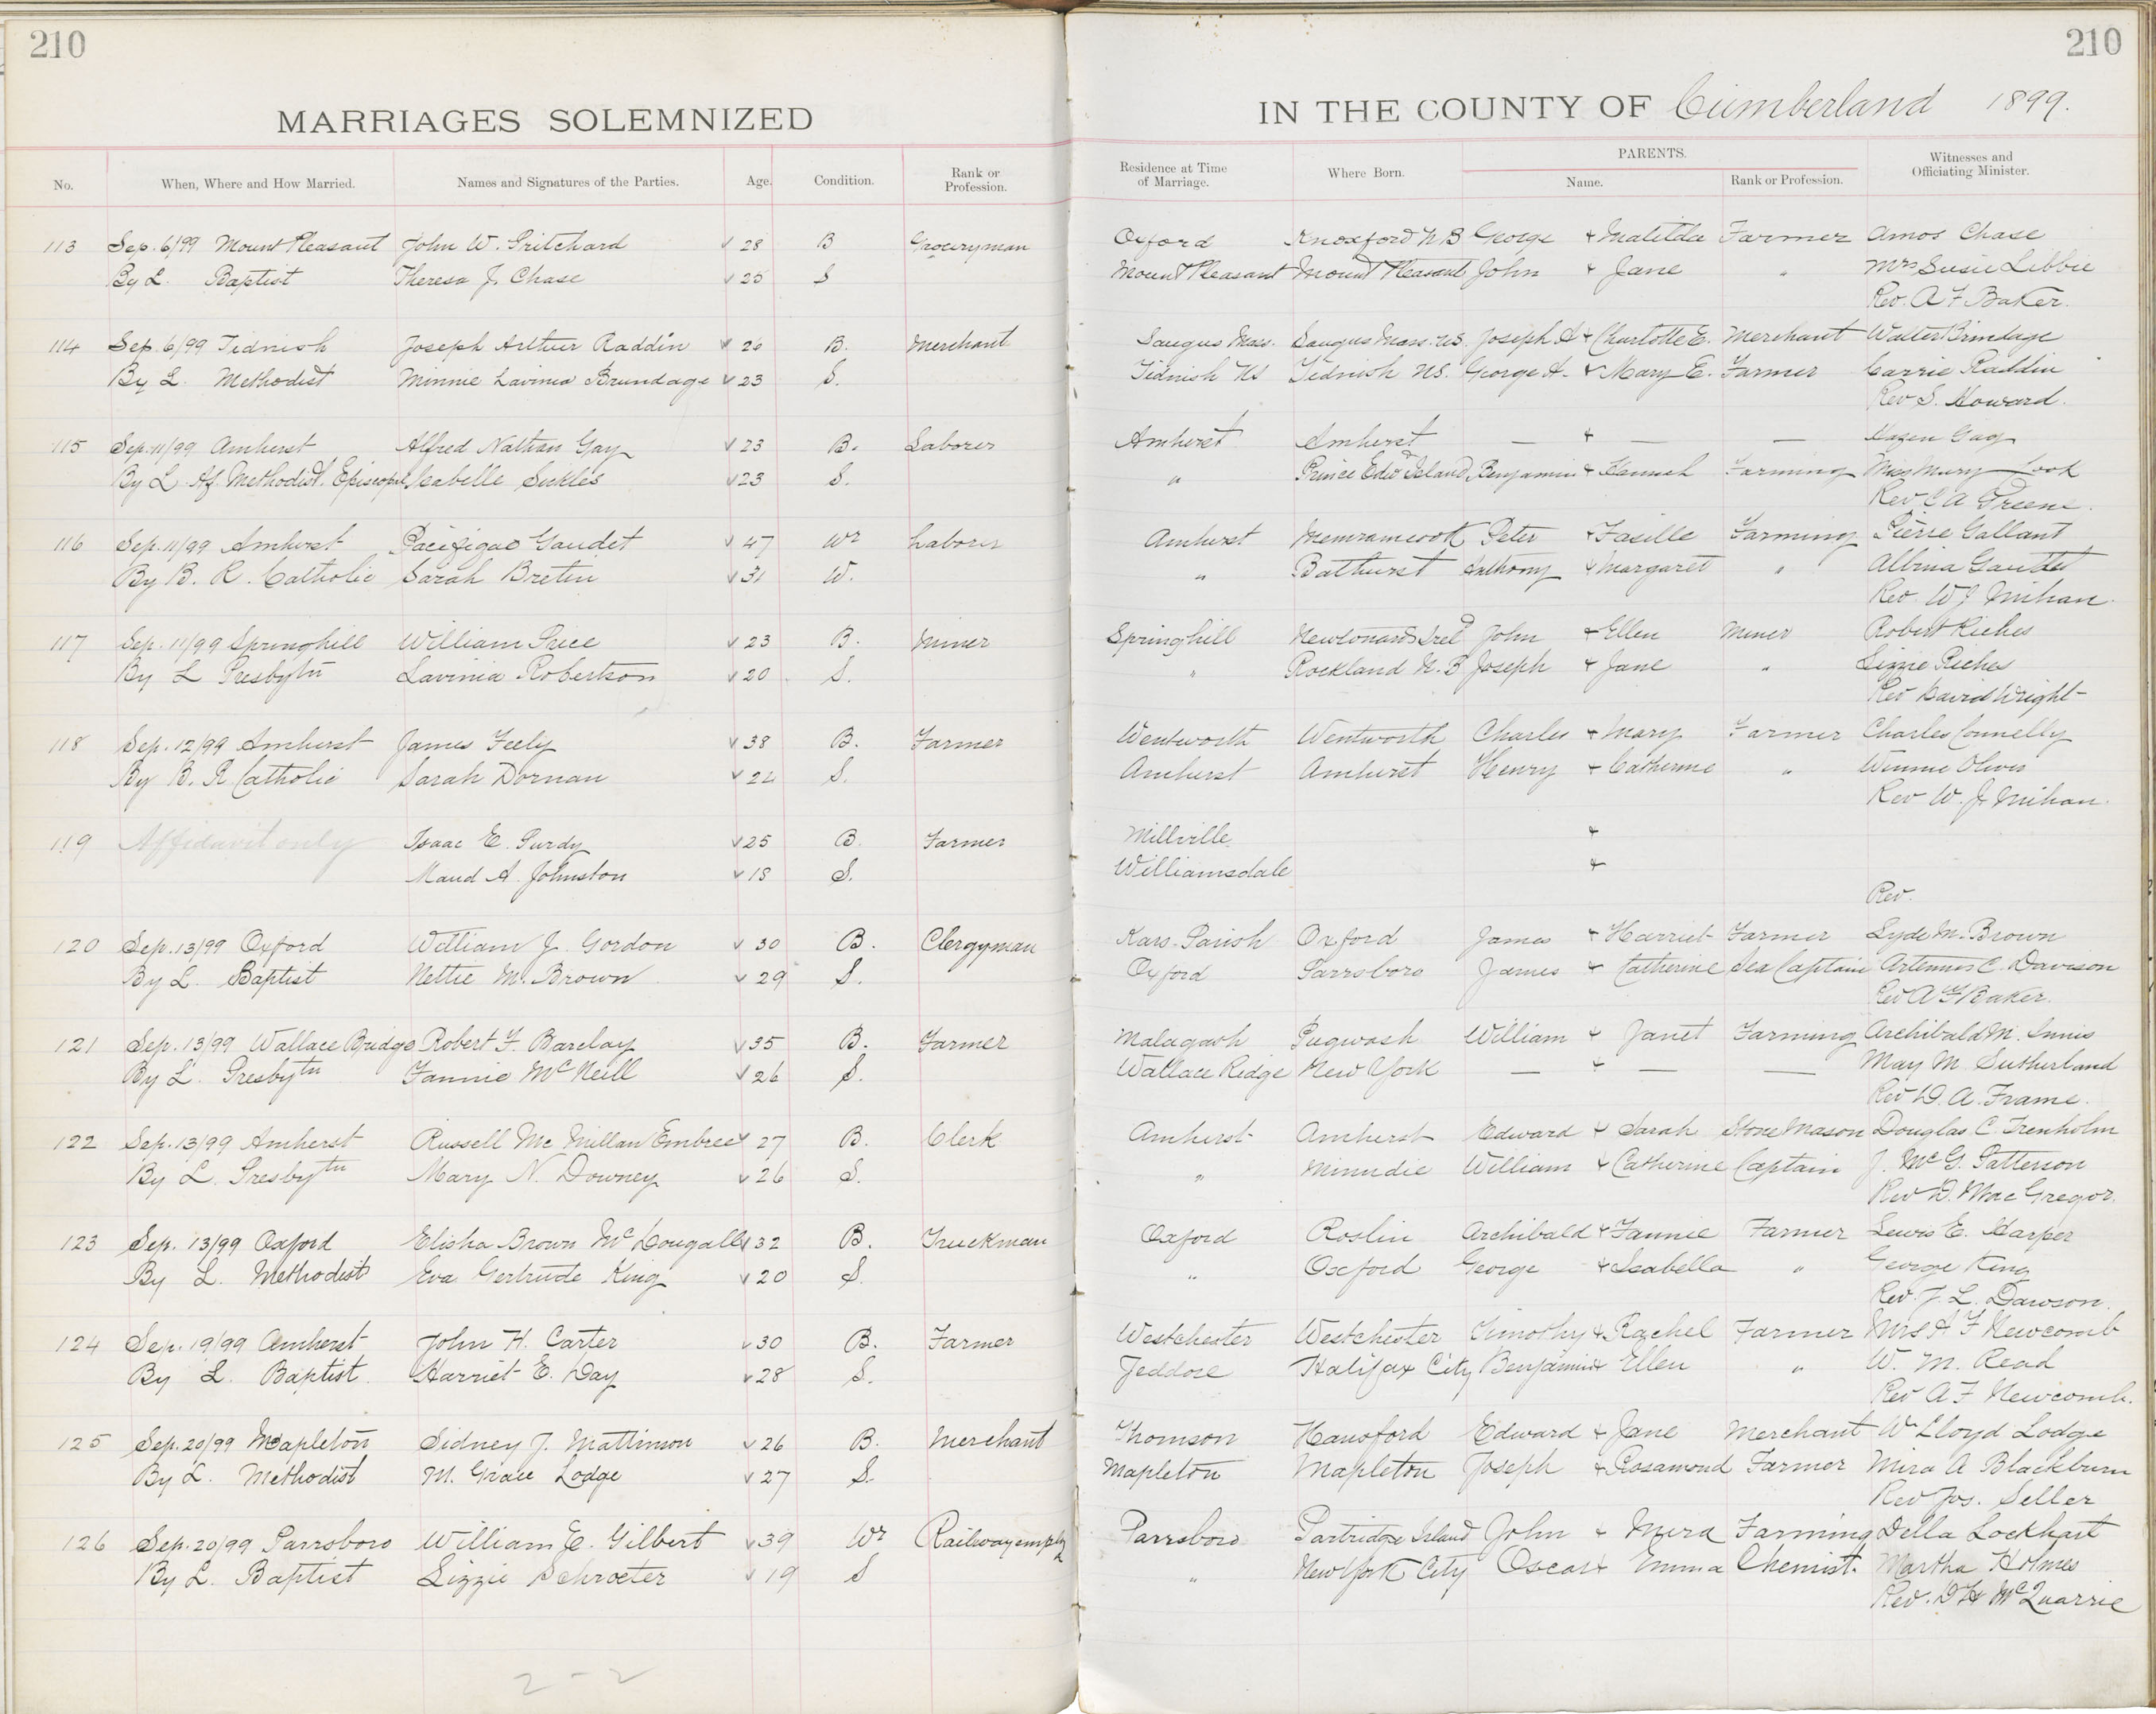 210
210
MARRIAGES SOLEMNIZED
IN THE COUNTY OF Cumberland 1899.
No. When, Where and How Married. Names and Signatures of the Parties. Age. Condition. Rank or Profession. Residence at Time of Marriage. Where Born. PARENTS. Name. Rank or Profession. Witnesses and Officiating Minister.
113 Sep. 6/99 Mount Pleasant John W. Pritchard 28 B Groceryman Oxford Knoxford N B George + Matilda Farmer Amos Chase
By L. Baptist Theresa J. Chase 25 S Mount Pleasant Mount Pleasant John + Jane " Mrs Susie Libbie
Rev. A F Baker.
114 Sep. 6/99 Tidnish Joseph Arthur Raddin 26 B. Merchant Saugus Mass. Saugus Mass. U.S. Joseph A + Charlotte E. Merchant Walter Brundage
By L. Methodist Minnie Lavinia Brundage 23 S. Tidnish NS Tidnish N.S. George A. + Mary E. Farmer Carrie Raddin
Rev S. Howard.
115 Sep. 11/99 Amherst Alfred Nathan Gay 23 B. Laborer Amherst Amherst — + — — Hazen Gay
By L. Af. Methodist Episcopal Isabelle Sickles 23 S. " Prince Edwd Island Benjamin + Hannah Farming Miss Mary Cook
Rev C A Greene.
116 Sep. 11/99 Amherst Pacifique Gaudet 47 Wr Laborer Amherst Memramcook Peter + Farming Pierre Gallant
By B. R. Catholic Sarah Bretin 31 W. " Bathurst Anthony + Margaret " Albina Gaudet
Rev. W J Mihan.
117 Sep. 11/99 Springhill William Price 23 B. Miner Springhill Newtonards Ireld John + Ellen Miner Robert Riches
By L Presbytn Lavinia Robertson 20 S. " Rockland N. B Joseph + Jane " Lizzie Riches
Rev David Wright
118 Sep. 12/99 Amherst James Feely 38 B. Farmer Wentworth Wentworth Charles + Mary Farmer Charles Connelly
By B. R Catholic Sarah Dornan 24 S. Amherst Amherst Henry + Catherine " Winnie Oliver
Rev W. J. Mihan.
119 Affidavit only Isaac E. Purdy 25 B. Farmer Millville +
Maud A. Johnston 18 S. Williamsdale +
Rev.
120 Sep. 13/99 Oxford William J. Gordon 30 B. Clergyman Kars Parish Oxford James + Harriet Farmer Lyde M. Brown
By L. Baptist Nettie M. Brown 29 S. Oxford Parrsboro James + Catherine Sea Captain Artemus C. Davison
Rev A F Baker.
121 Sep. 13/99 Wallace Bridge Robert F. Barclay 35 B. Farmer Malagash Pugwash William + Janet Farming Archibald M. Innis
By L. Presbytn Fannie McNeill 26 S. Wallace Ridge New York — + — — May M. Sutherland
Rev D. A. Frame.
122 Sep. 13/99 Amherst Russell McMillan Embree 27 B. Clerk Amherst Amherst Edward + Sarah Stone Mason Douglas C. Trenholm
By L. Presbytn Mary N. Downey 26 S. " Minudie William + Catherine Captain J. McG. Patterson
Rev D. MacGregor.
123 Sep. 13/99 Oxford Elisha Brown McDougall 32 B. Truckman Oxford Roslin Archibald + Fannie Farmer Lewis E. Harper
By L. Methodist Eva Gertrude King 20 S. " Oxford George + Isabella " George King
Rev. J. L. Dawson.
124 Sep. 19/99 Amherst John H. Carter 30 B. Farmer Westchester Westchester Timothy + Rachel Farmer Mrs A F Newcomb
By L. Baptist. Harriet E. Day 28 S. Jeddore Halifax City Benjamin + Ellen " W. M. Read
Rev A F Newcomb.
125 Sep. 20/99 Mapleton Sidney J. Mattinson 26 B. Merchant Thomson Hansford Edward + Jane Merchant W Lloyd Lodge
By L. Methodist M. Grace Lodge 27 S. Mapleton Mapleton Joseph + Rosamond Farmer Mira A Blackburn
Rev Jos. Seller
126 Sep. 20/99 Parrsboro William E. Gilbert 39 Wr Railway Parrsboro Partridge Island John + Mira Farming Della Lockhart
By L. Baptist Lizzie Schroeter 19 S " New York City Oscar + Emma Chemist. Martha Holmes
Rev. D H McQuarrie
2-2